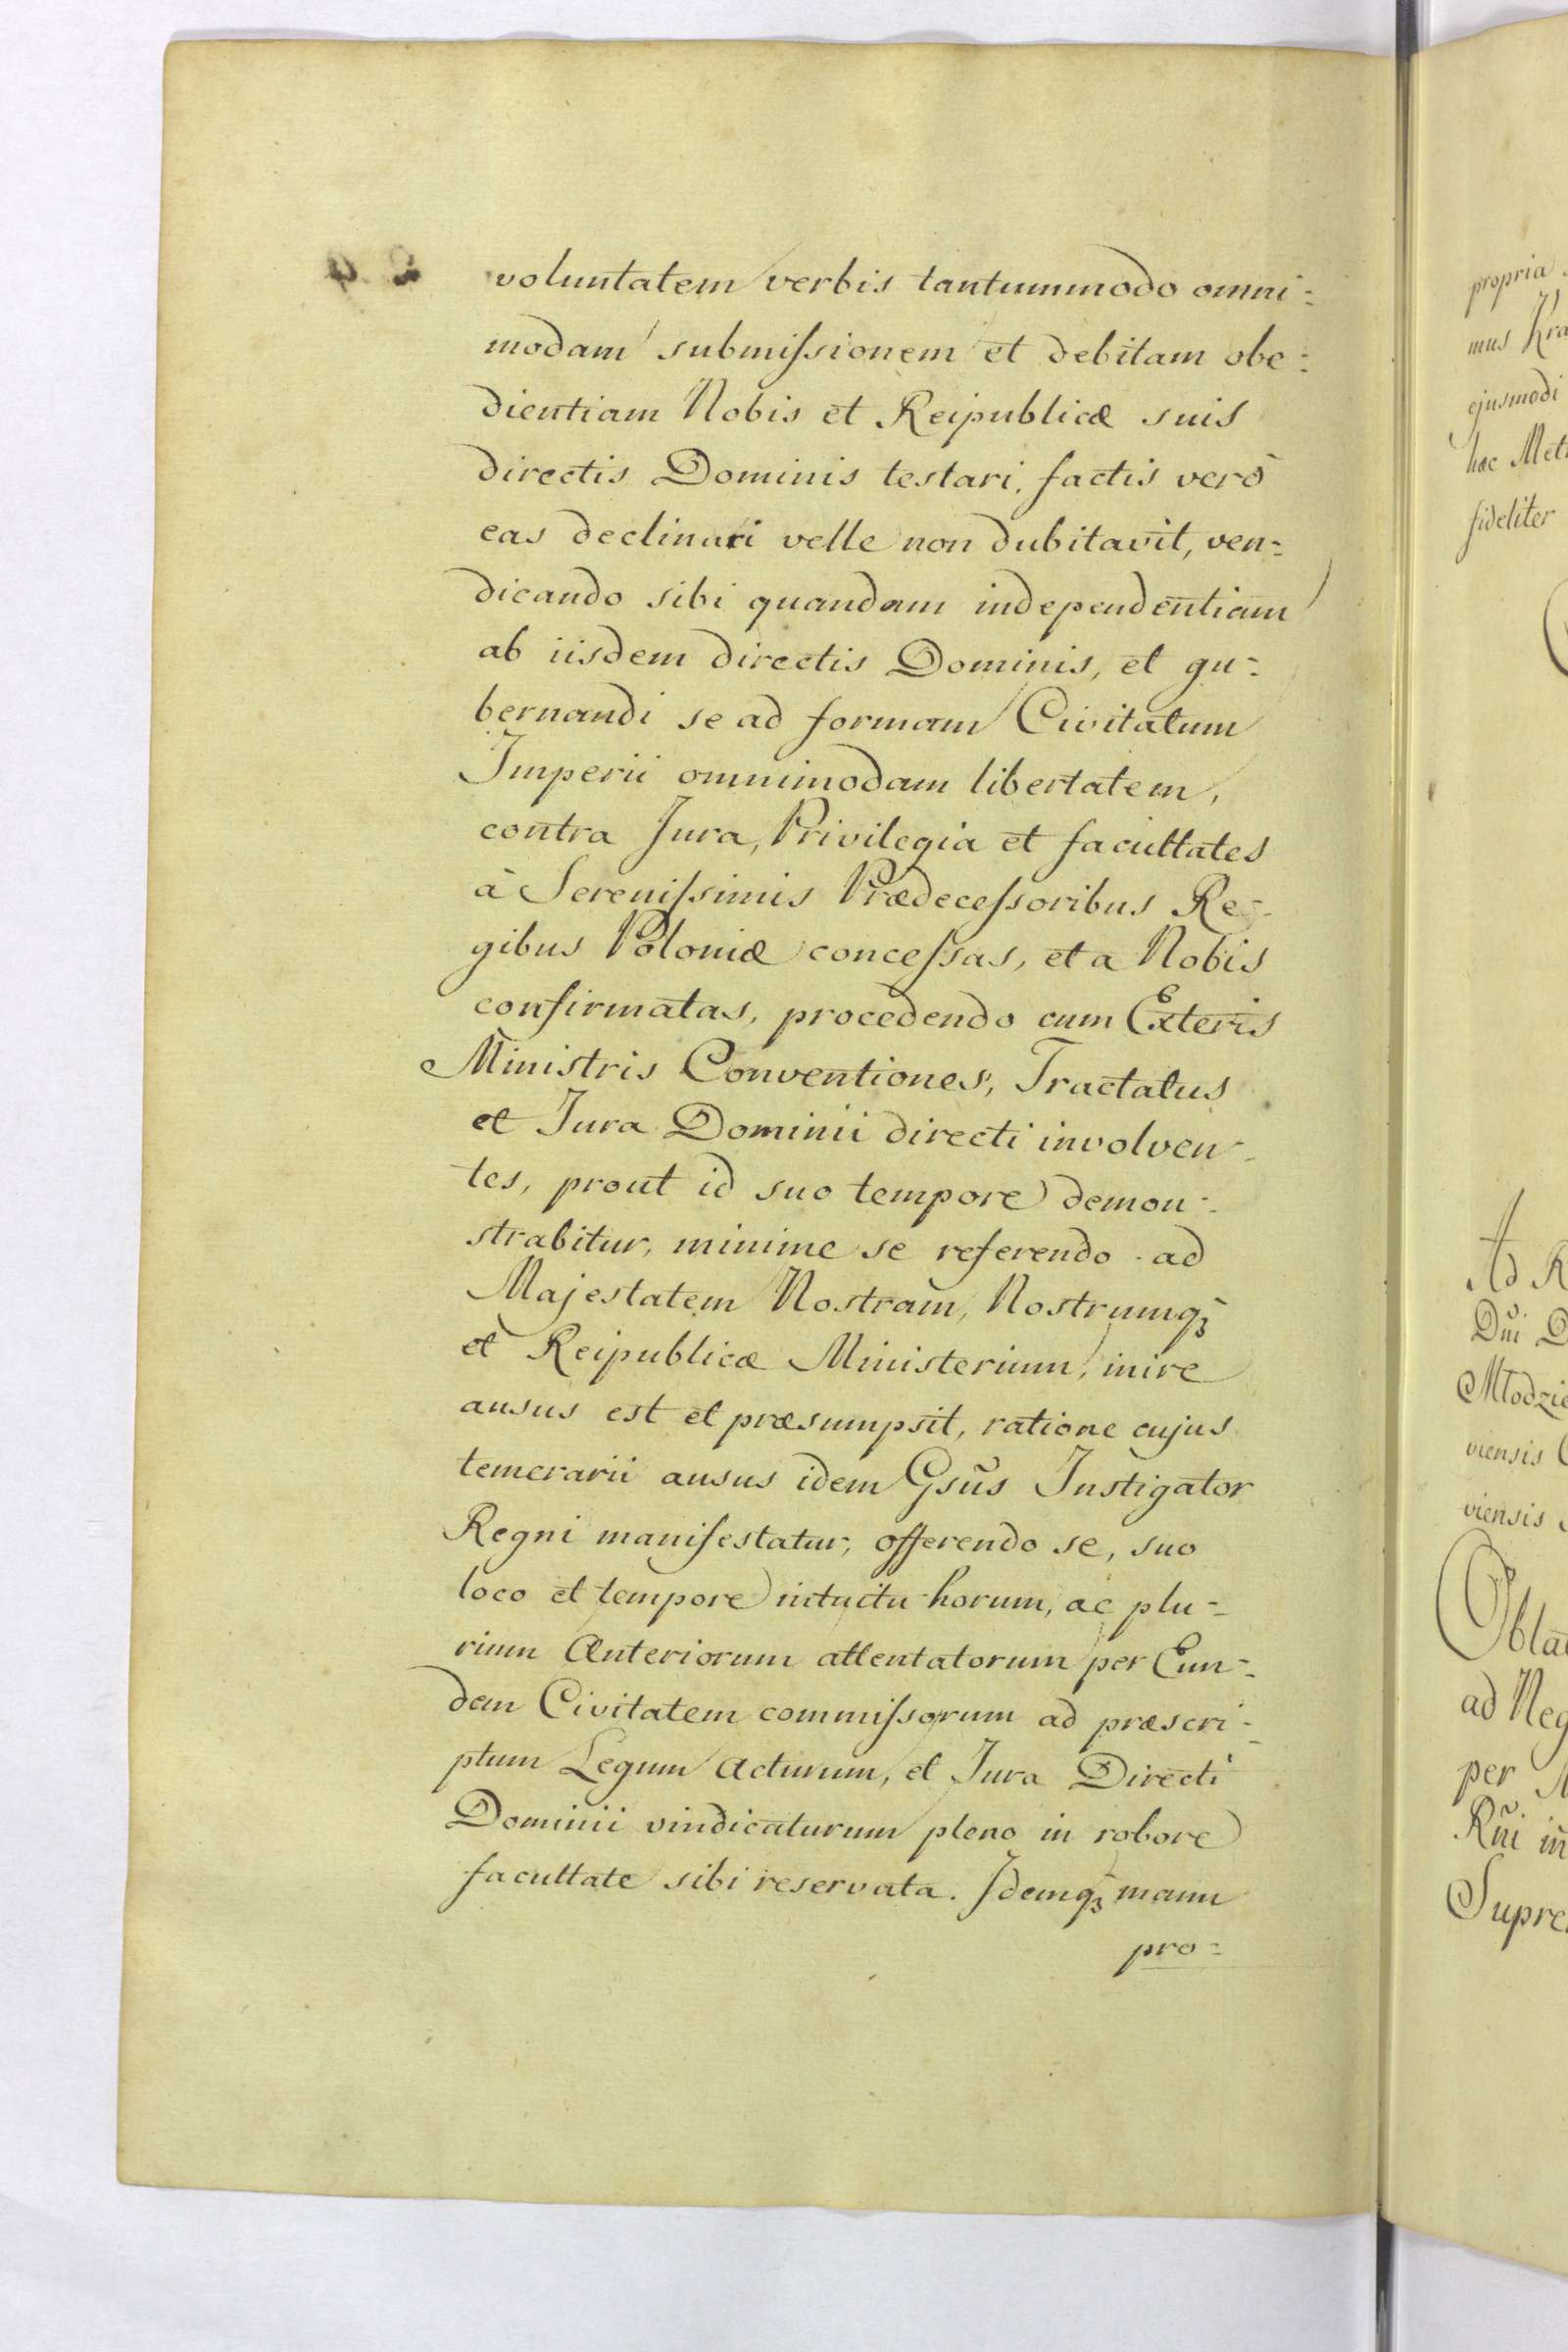 voluntatem verbis tantummodo omni=
modam submiſsionem et debitam obe=
dientiam Nobis et Reipublicæ suis
directis Dominis testari, factis verò
eas declinari velle non dubitavit, ven=
dicando sibi quandam independentiam
ab iisdem directis Dominis, et gu=
bernandi se ad formam Civitatum
Imperii omnimodam libertatem,
contra Jura, Privilegia et facultates
à Sereniſsimis Prædeceſsoribus Re=
gibus Poloniæ conceſsas, et a Nobis
confirmatas, procedendo cum Exteris
Ministris Conventiones, Tractatus
et Jura Dominii directi involven=
tes, prout id suo tempore demon=
strabitur, minime se referendo ad
Majestatem Nostram, Nostrumqꝫ
et Reipublicæ Ministerium, inire
ausus est et præsumpsit, ratione cujus
temerarii ausus idem Gsus̃ Instigator
Regni manifestatur, offerendo se, suo
loco et tempore intuitu horum, ac plu=
rium Anteriorum attentatorum per Eun=
dem Civitatem commiſsorum ad præscri=
ptum Legum acturum, et Jura Directi
Dominii vindicaturum pleno in robore
facultate sibi reservata. Idemqꝫ manu
pro=
propria
mus
ejusmodi
hac
fideliter
Ad
Dñi
viensis
viensis
ad
per
Rñi